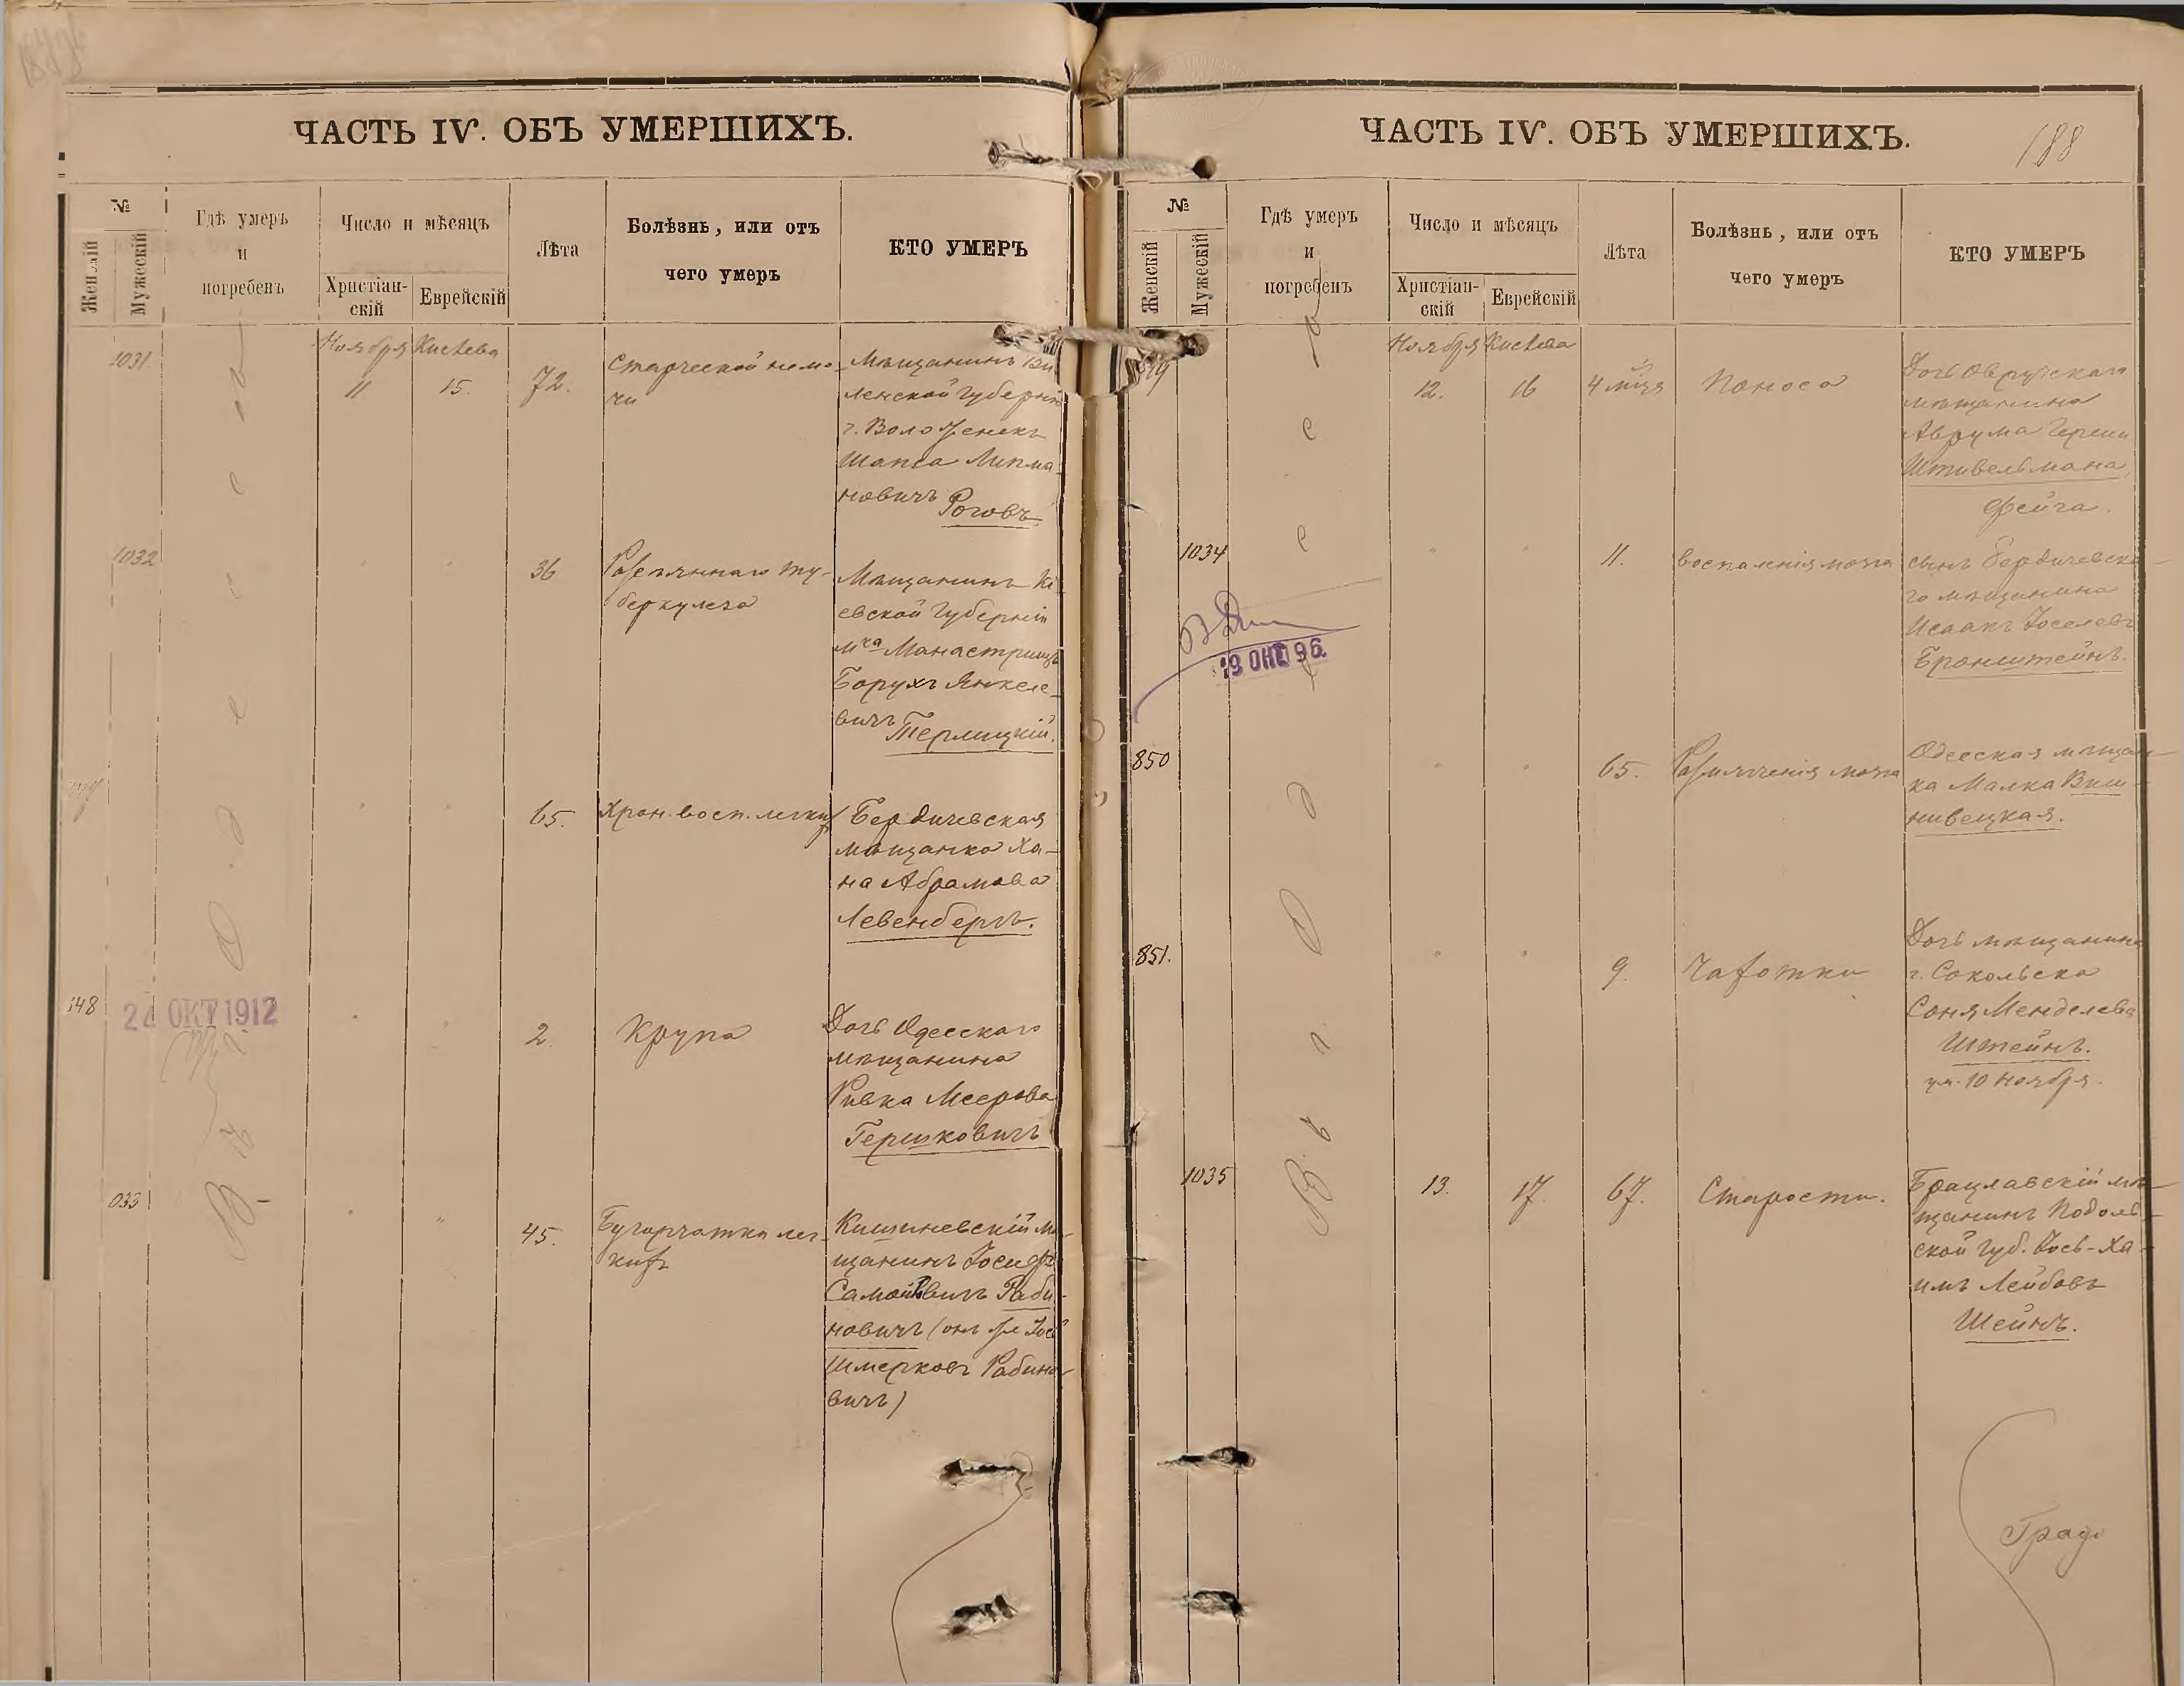 ЧАСТЬ IV. ОБЪ УМЕРШИХЪ.
№
Женскій
Мужескій
Гдѣ умеръ
и
погребенъ
Число и мѣсяцъ
Христіан-
скій
Еврейскій
Лѣта
Болѣзнь, или отъ
чего умеръ
КТО УМЕРЪ
Въ Одессѣ
1031.
Ноября Кислева
11 15.
72.
Старческой немо-
чи
Мѣщанинъ Ви-
ленской Губерніи
г.
Шапса Липма-
новичъ
Роговъ
1032
36
Разсѣяннаго ту-
беркулеза
Мѣщанинъ Кі
евской Губерніи
мча Манастрищъ
Борухъ Янкеле-
вичъ
Терлицкій.
65.
Хрон. восп. легкихъ
Бердичевская
мѣщанка Ха-
на Абрамова
Левенбергъ.
848
24 ОКТ 1912
2.
Крупа
Дочь Одесскаго
мѣщанина
Ривка Меерова
Гершковичъ
033
45.
Бугорчатка лег-
кихъ
Кишиневскій мѣ-
щанинъ Іосифъ
Раби-
новичъ (онъ же Іос
Шмерковъ Рабино-
вичъ)
ЧАСТЬ IV. ОБЪ УМЕРШИХЪ.
188
№
Женскій
Мужескій
Гдѣ умеръ
и
погребенъ
Число и мѣсяцъ
Христіан-
скій
Еврейскій
Лѣта
Болѣзнь, или отъ
чего умеръ
КТО УМЕРЪ
Въ Одессѣ
849
Ноября Кислева
12. 16
4 мѣця
Поноса
Дочь Овручскаго
мѣщанина
Аврума Герши
Штивельмана,
Фейга.
1034
11.
воспаленія мозга
сынъ бердичевска-
го мѣщанина
Исаакъ Іоселевъ
Бронштейнъ.
19 ОКТ 96.
850
65.
Размягченія мозга
Одесская мѣщан-
ка Малка Виш-
нивецкая.
851.
9.
Чахотки
Дочь мѣщанина
г. Сокольска
Соня Менделева
Штейнъ.
ум. 10 ноября.
1035
13. 17.
67.
Старости.
Брацлавскій мѣ-
щанинъ Подоль-
ской Губ. Іось-Ха-
имъ Лейбовъ
Шейнъ.